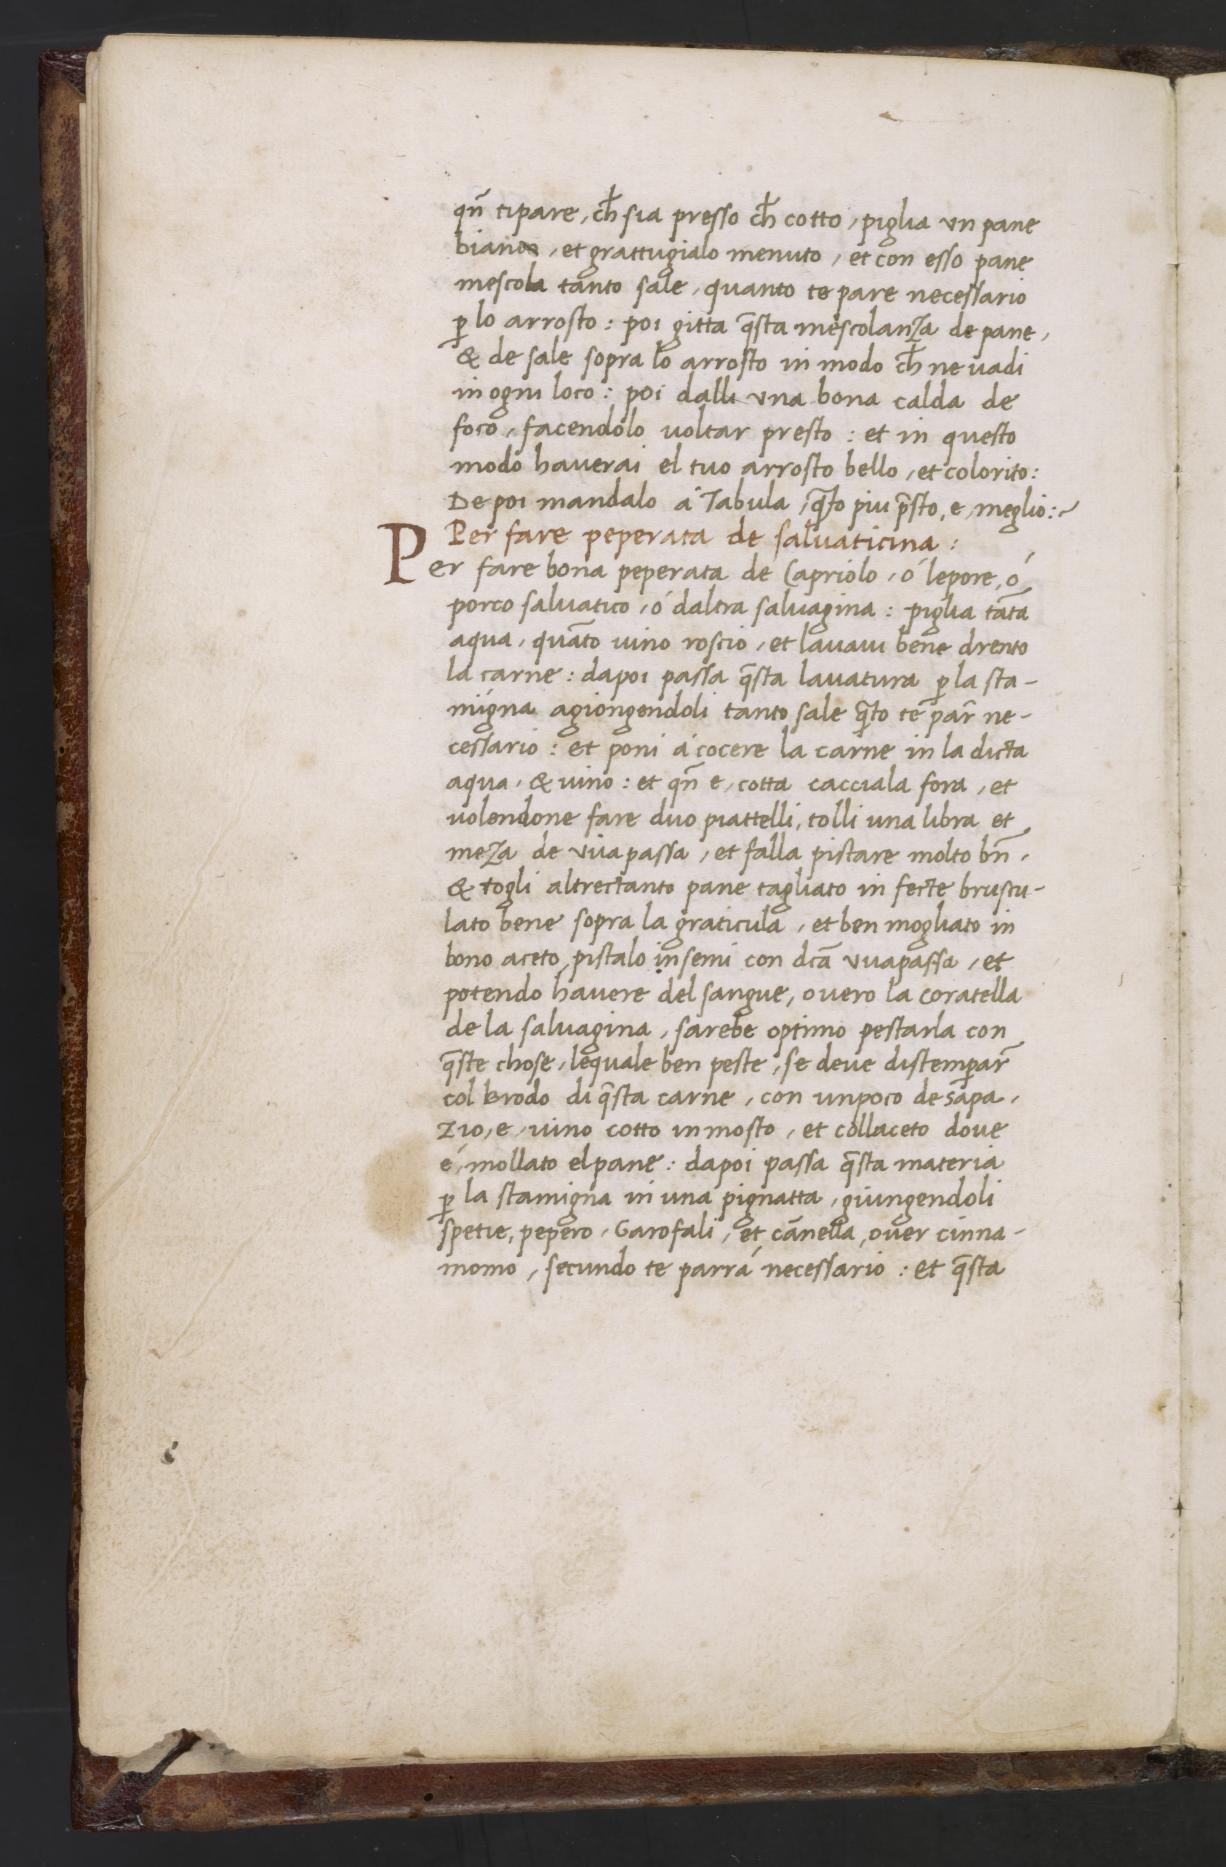 qn̄ tipare, ch̄ sia presso ch̄ cotto, piglia vn pane
bianco, et grattugialo menuto, et con esso pane
mescola tanto sale, quanto te pare necessario
ꝑ lo arrosto: poi gitta q̄sta mescolanza de pane,
& de sale sopra lo arrosto in modo ch̄ ne uadi
in ogni loco: poi dalli vna bona calda de
foco, facendolo uoltar presto: et in questo
modo hauerai el tuo arrosto bello, et colorito:
De poi mandalo a' Tabula, q̄to piu p̄sto, e, meglio:
Per fare peperata de saluaticina:
Per fare bona peperata de Capriolo, ó lepore, ó
porco saluatico, ó daltra saluagina: piglia tāta
aqua, quāto uino roscio, et lauaui bene drento
la carne: dapoi passa q̄sta lauatura ꝑ la sta-
migna agiongendoli tanto sale q̄to te par̄ ne-
cessario: et poni a' cocere la carne in la dicta
aqua, & uino: et qn̄ e, cotta cacciala fora, et
uolendone fare duo piattelli, tolli una libra et
meza de vua passa, et falla pistare molto bn̄,
& togli altrectanto pane tagliato in fecte bruscu-
lato bene sopra la graticula, et ben mogliato in
bono aceto, pistalo insemi con dc̄a vuapassa, et
potendo hauere del sangue, ouero la coratella
de la saluagina, sarebe optimo pestarla con
q̄ste chose, lequale ben peste, se deue distemꝑar̄
col brodo di q̄sta carne, con unpoco de sāpa,
zio, e, uino cotto in mosto, et collaceto doue
é, mollato el pane: dapoi passa q̄sta materia
ꝑ la stamigna in una pignatta, giungendoli
spetie, pepero, Garofali, et cānella, ouer cinna-
momo, secundo te parrá necessario: et q̄sta